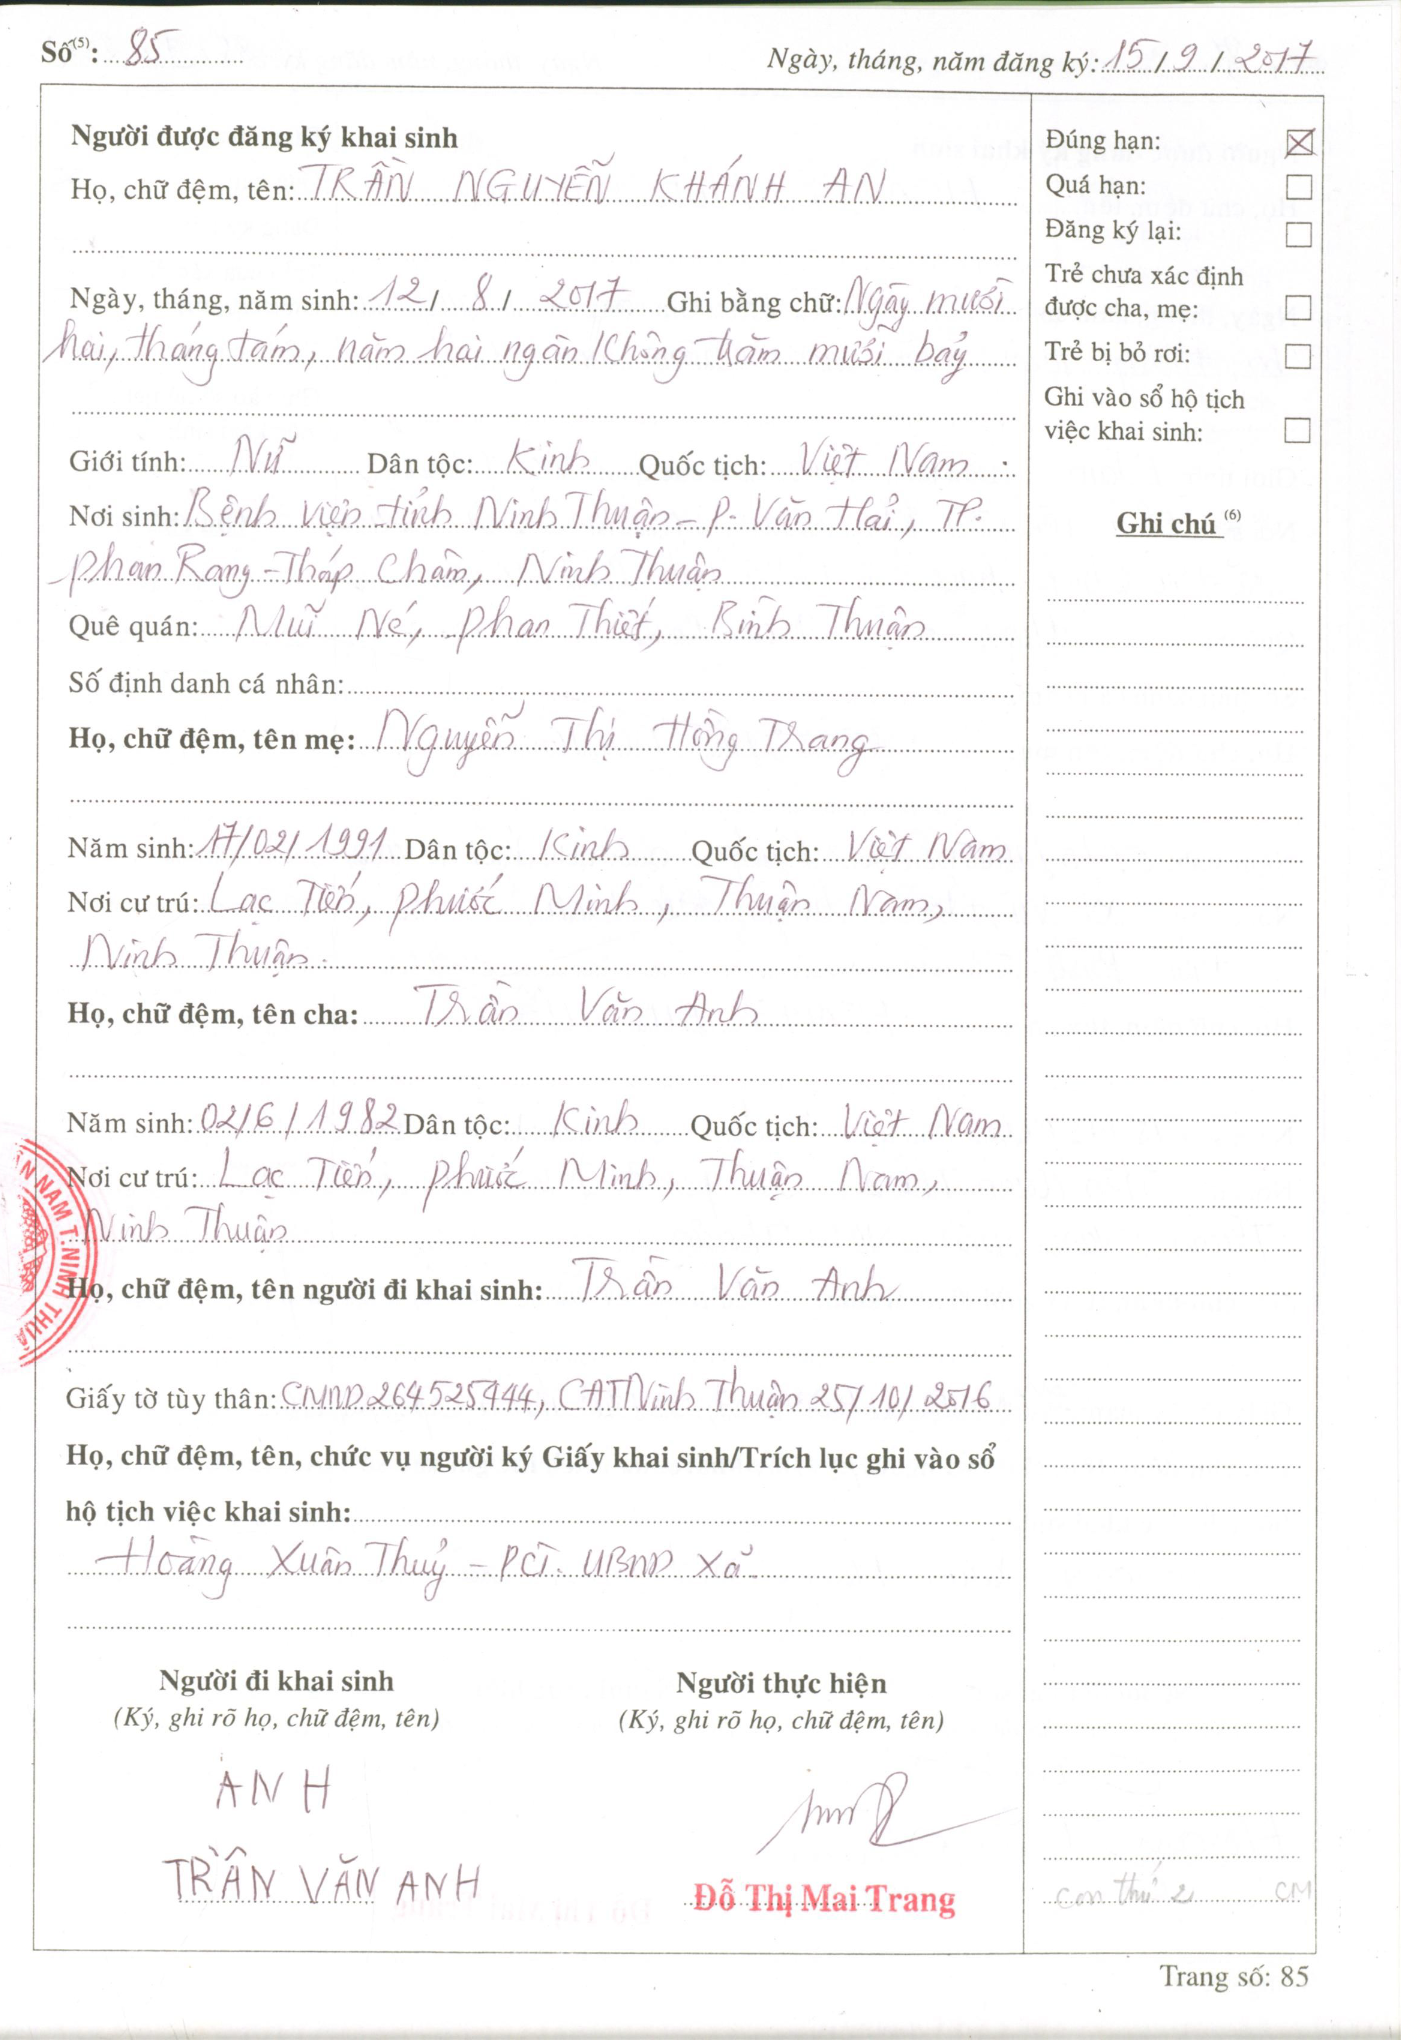 Số(5): 85
Ngày, tháng, năm đăng ký: 15/9/2017
Người được đăng ký khai sinh
Họ, chữ đệm, tên: TRẦN NGUYỄN KHÁNH AN
Ngày, tháng, năm sinh: 12/ 8/ 2017 Ghi bằng chữ: Ngày mười
hai, tháng tám, năm hai ngàn không trăm mười bảy
Giới tính: Nữ Dân tộc: Kinh Quốc tịch: Việt Nam
Nơi sinh: Bệnh viện tỉnh Ninh Thuận - P. Văn Hải, TP.
Phan Rang - Tháp Chàm, Ninh Thuận
Quê quán: Mũi Né, Phan Thiết, Bình Thuận
Số định danh cá nhân:
Họ, chữ đệm, tên mẹ: Nguyễn Thị Hồng Trang
Năm sinh: 17/02/1991 Dân tộc: Kinh Quốc tịch: Việt Nam
Nơi cư trú: Lạc Tiến, Phước Minh, Thuận Nam,
Ninh Thuận.
Họ, chữ đệm, tên cha: Trần Văn Anh
Năm sinh: 02/6/1982 Dân tộc: Kinh Quốc tịch: Việt Nam
Nơi cư trú: Lạc Tiến, Phước Minh, Thuận Nam,
Ninh Thuận
Họ, chữ đệm, tên người đi khai sinh: Trần Văn Anh
Giấy tờ tùy thân: CMND 264525444, CAT Ninh Thuận 25/10/2016
Họ, chữ đệm, tên, chức vụ người ký Giấy khai sinh/Trích lục ghi vào sổ
hộ tịch việc khai sinh:
Hoàng Xuân Thuỷ - PCT. UBND Xã
Người đi khai sinh
(Ký, ghi rõ họ, chữ đệm, tên)
ANH
TRẦN VĂN ANH
Người thực hiện
(Ký, ghi rõ họ, chữ đệm, tên)
Đỗ Thị Mai Trang
Đúng hạn: ☒
Quá hạn: ☐
Đăng ký lại: ☐
Trẻ chưa xác định
được cha, mẹ: ☐
Trẻ bị bỏ rơi: ☐
Ghi vào sổ hộ tịch
việc khai sinh: ☐
Ghi chú (6)
con thứ 2 CM
NAM T.NINH THUẬ
Trang số: 85